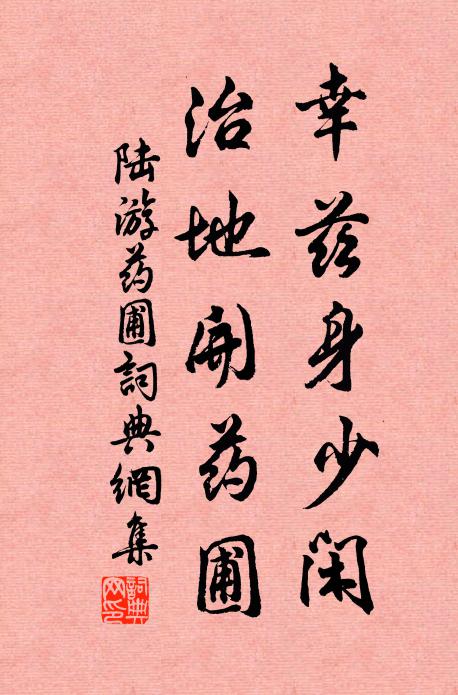 幸兹身少闲
治地開药圃
陆游药圃詞典網集
詞典网印